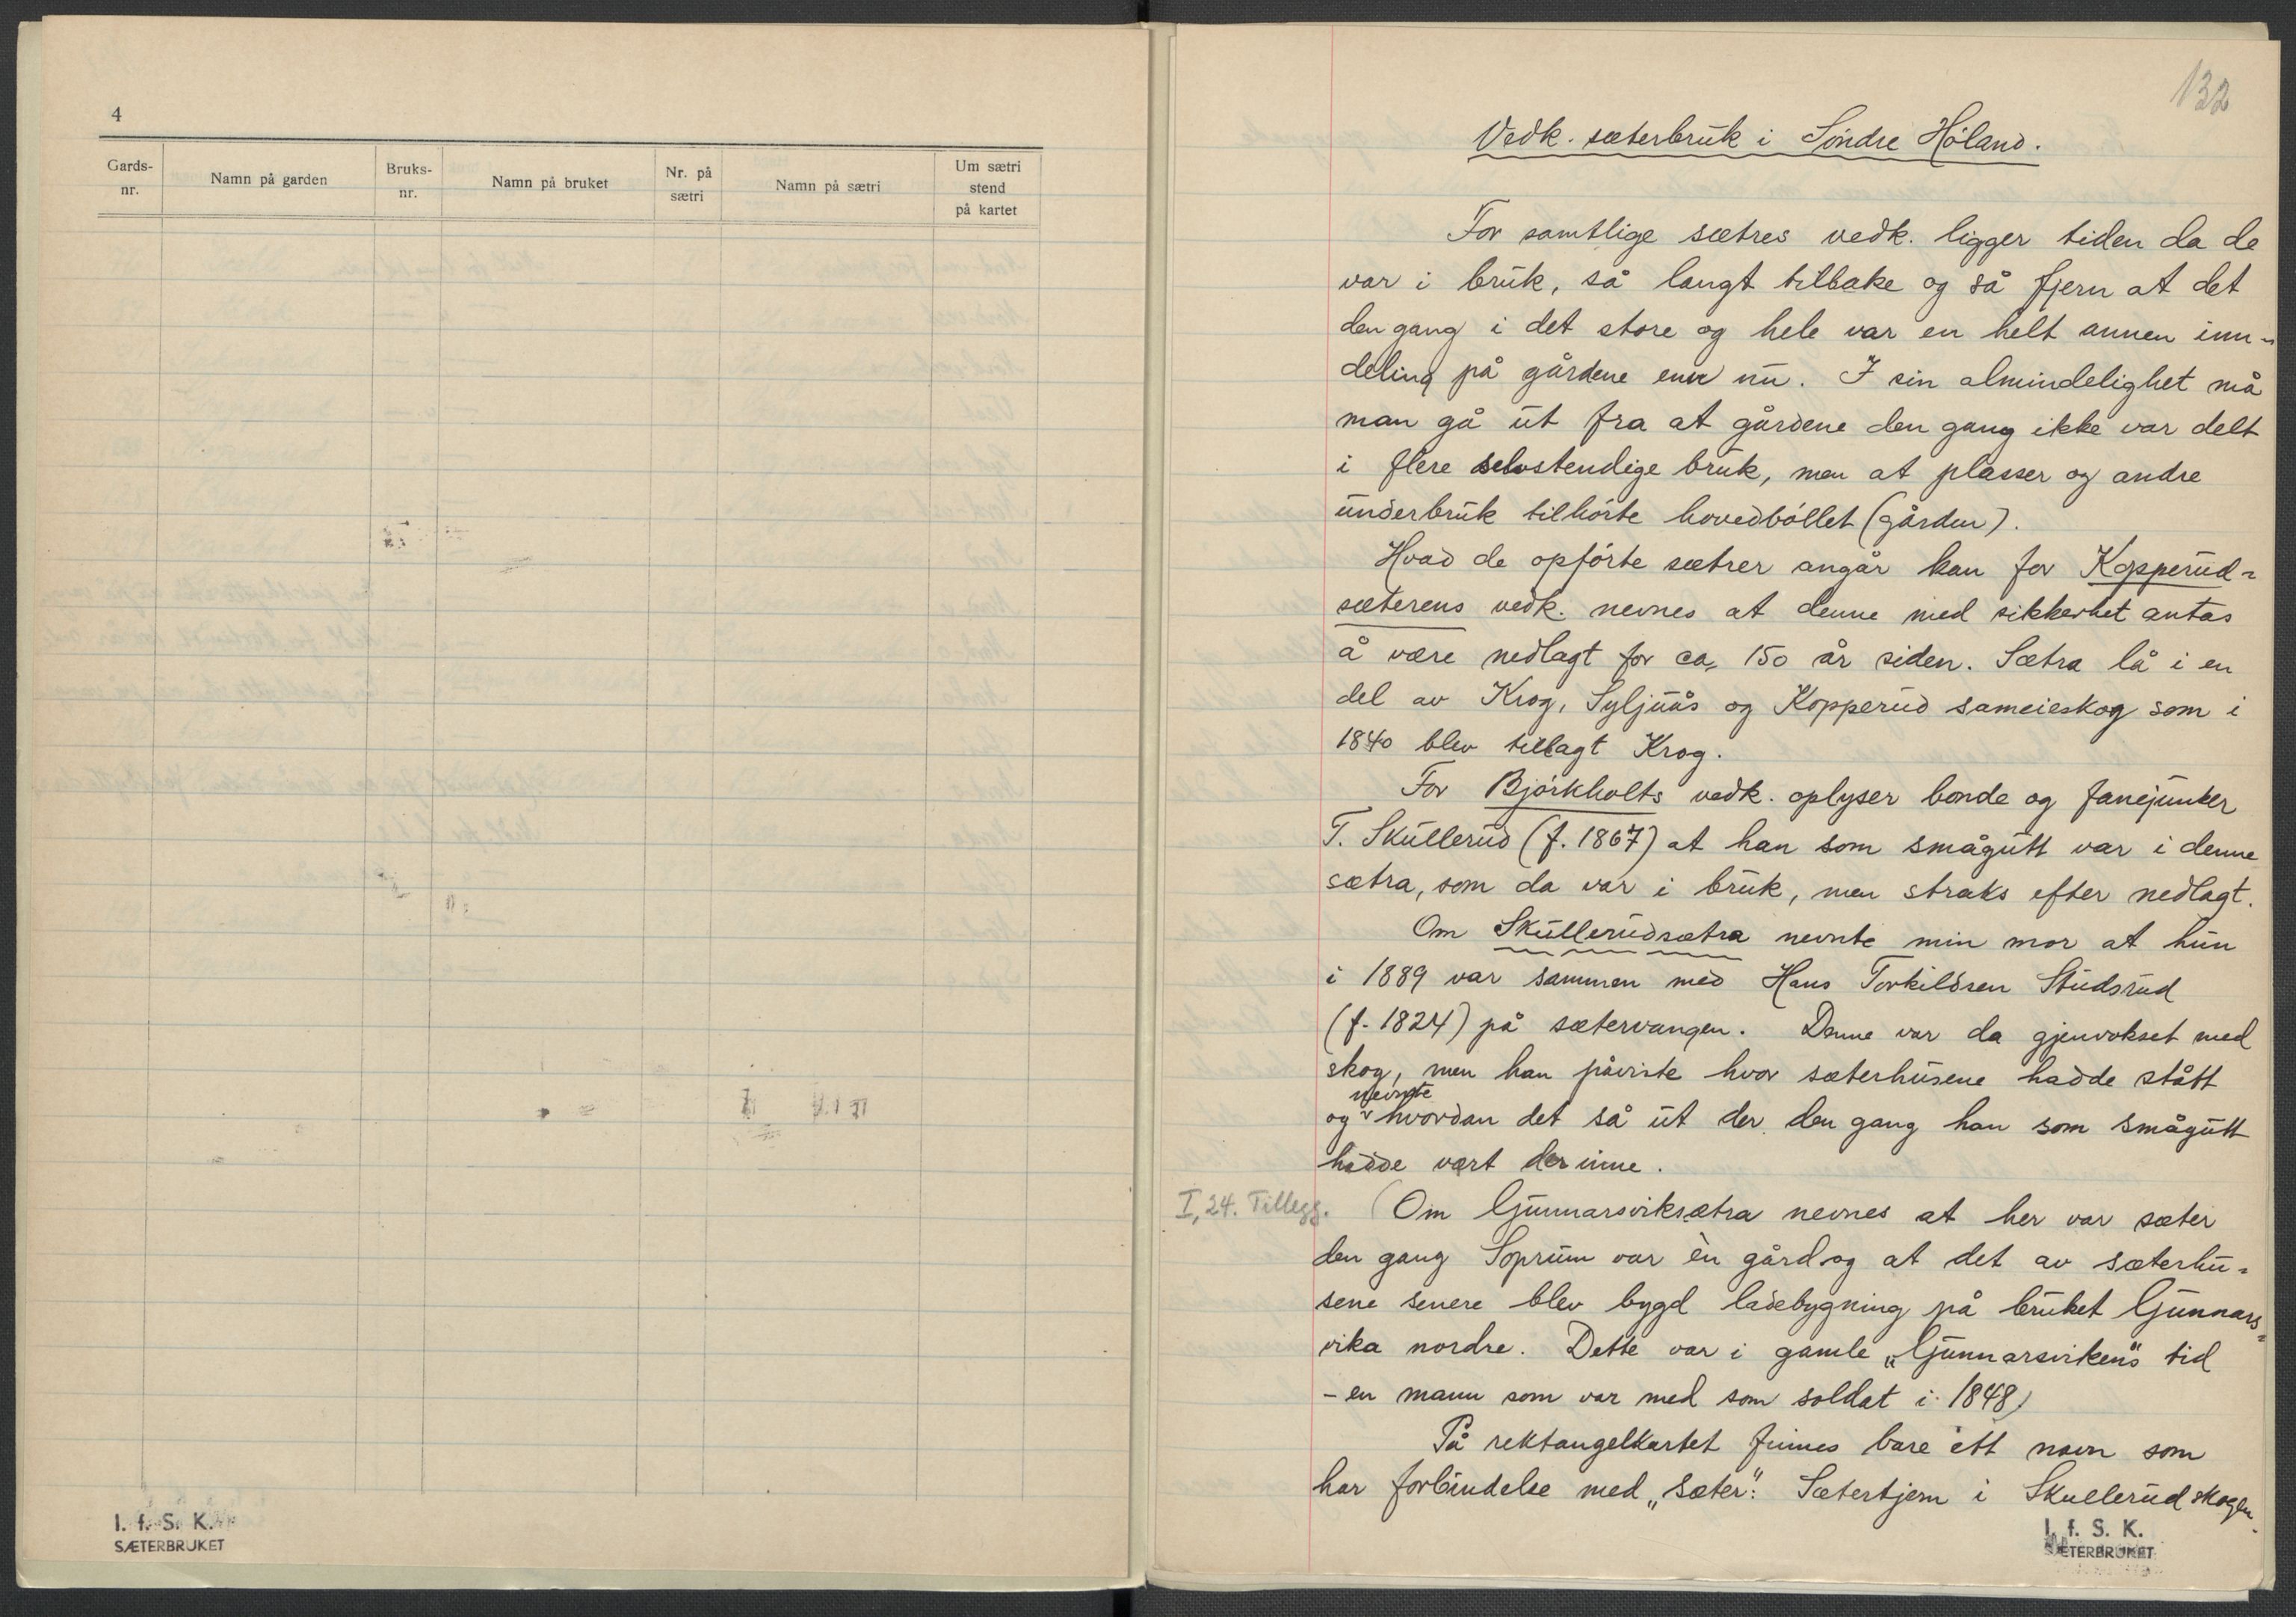 4
Gards-
nr.
Namn på garden
Bruks-
nr.
Namn på bruket
Nr. på
sætri
Namn på sætri
Um sætri
stend
på kartet
I. f. S. K.
SÆTERBRUKET
132
Vedk. sæterbruk i Söndre Höland.
For samtlige sætres vedk. ligger tiden da de
var i bruk, så langt tilbake og så fjern at det
den gang i det store og hele var en helt annen inn-
deling på gårdene enn nu. I sin almindelighet må
man gå ut fra at gårdene den gang ikke var delt
i flere selvstendige bruk, men at plasser og andre
underbruk tilhörte hovedböllet (gården).
Hvad de opförte sætrer angår kan for Kopperud-
sæterens vedk. nevnes at denne med sikkerhet antas
å være nedlagt for ca. 150 år siden. Sætra lå i en
del av Krog, Syljuås og Kopperud sameieskog som i
1840 blev tillagt Krog.
For Björkholts vedk. oplyser bonde og fanejunker
T. Skullerud (f. 1867) at han som smågutt var i denne
sætra, som da var i bruk, men straks efter nedlagt.
Om Skullerudsætra nevnte min mor at hun
i 1889 var sammen med Hans Torkildsen Studsrud
(f. 1824) på sætervangen. Denne var da gjenvokset med
skog, men han påviste hvor sæterhusene hadde stått
og nevnte hvordan det så ut der den gang han som smågutt
hadde vært der inne.
I, 24. Tillegg. (Om Gunnarsviksætra nevnes at her var sæter
den gang Soprum var èn gård og at det av sæterhu-
sene senere blev bygd ladebygning på bruket Gunnars-
vika nordre. Dette var i gamle „Gunnarsvikens" tid
- en mann som var med som soldat i 1848)
På rektangelkartet finnes bare ett navn som
har forbindelse med „sæter": Sætertjern i Skullerudskogen.
I. f. S. K.
SÆTERBRUKET